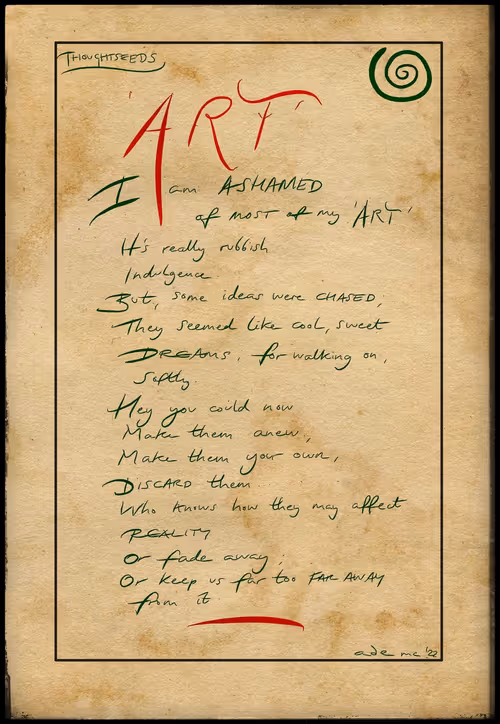 THOUGHTSEEDS
'ART'
I am ASHAMED
of most of my 'ART'
It's really rubbish
Indulgence
But, some ideas were CHASED,
They seemed like cool, sweet
DREAMS, for walking on,
Softly.
Hey you could now
Make them anew,
Make them your own,
DISCARD them
Who knows how they may affect
REALITY
Or fade away;
Or keep us far too FAR AWAY
from it
ade mc '22